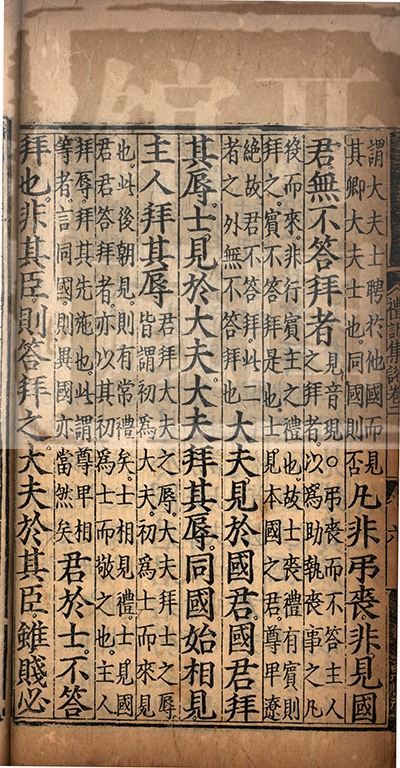 禮記集說卷二
六
謂大夫士聘於他國而見
其卿大夫士也。同國則否
凡非弔喪。非見國
君。無不答拜者
見音現。○弔喪而不答主人
之拜者。以爲助執喪事之凡
役而來。非行賓主之禮也。故士喪禮有賓則
拜之。賓不答拜是也。士見本國之君。尊卑遼
絶。故君不答拜。此二
者之外無不答拜也
大夫見於國君。國君拜
其辱。士見於大夫。大夫拜其辱。同國始相見
主人拜其辱
君拜大夫之辱。大夫拜士之辱
皆謂初爲大夫。初爲士而來見
也。此後朝見。則有常禮矣。士相見禮。士見國
君。君答拜者。亦以其初爲士而敬之也。主人
拜辱。拜其先施也。此謂尊卑相
等者。言同國。則異國亦當然矣
君於士。不答
拜也。非其臣。則答拜之。大夫於其臣雖賤必